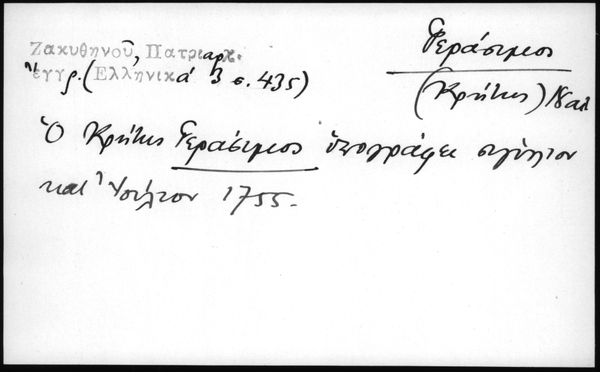 Ζακυθηνοῦ, Πατριαρχ.
ἔγγρ. (Ἑλληνικά 3 σ. 435)
Γεράσιμος
(Κρήτης) 18 αἰ
Ὁ Κρήτης Γεράσιμος ὑπογράφει σιγίλλιον
κατ' Ἰούλιον 1755.